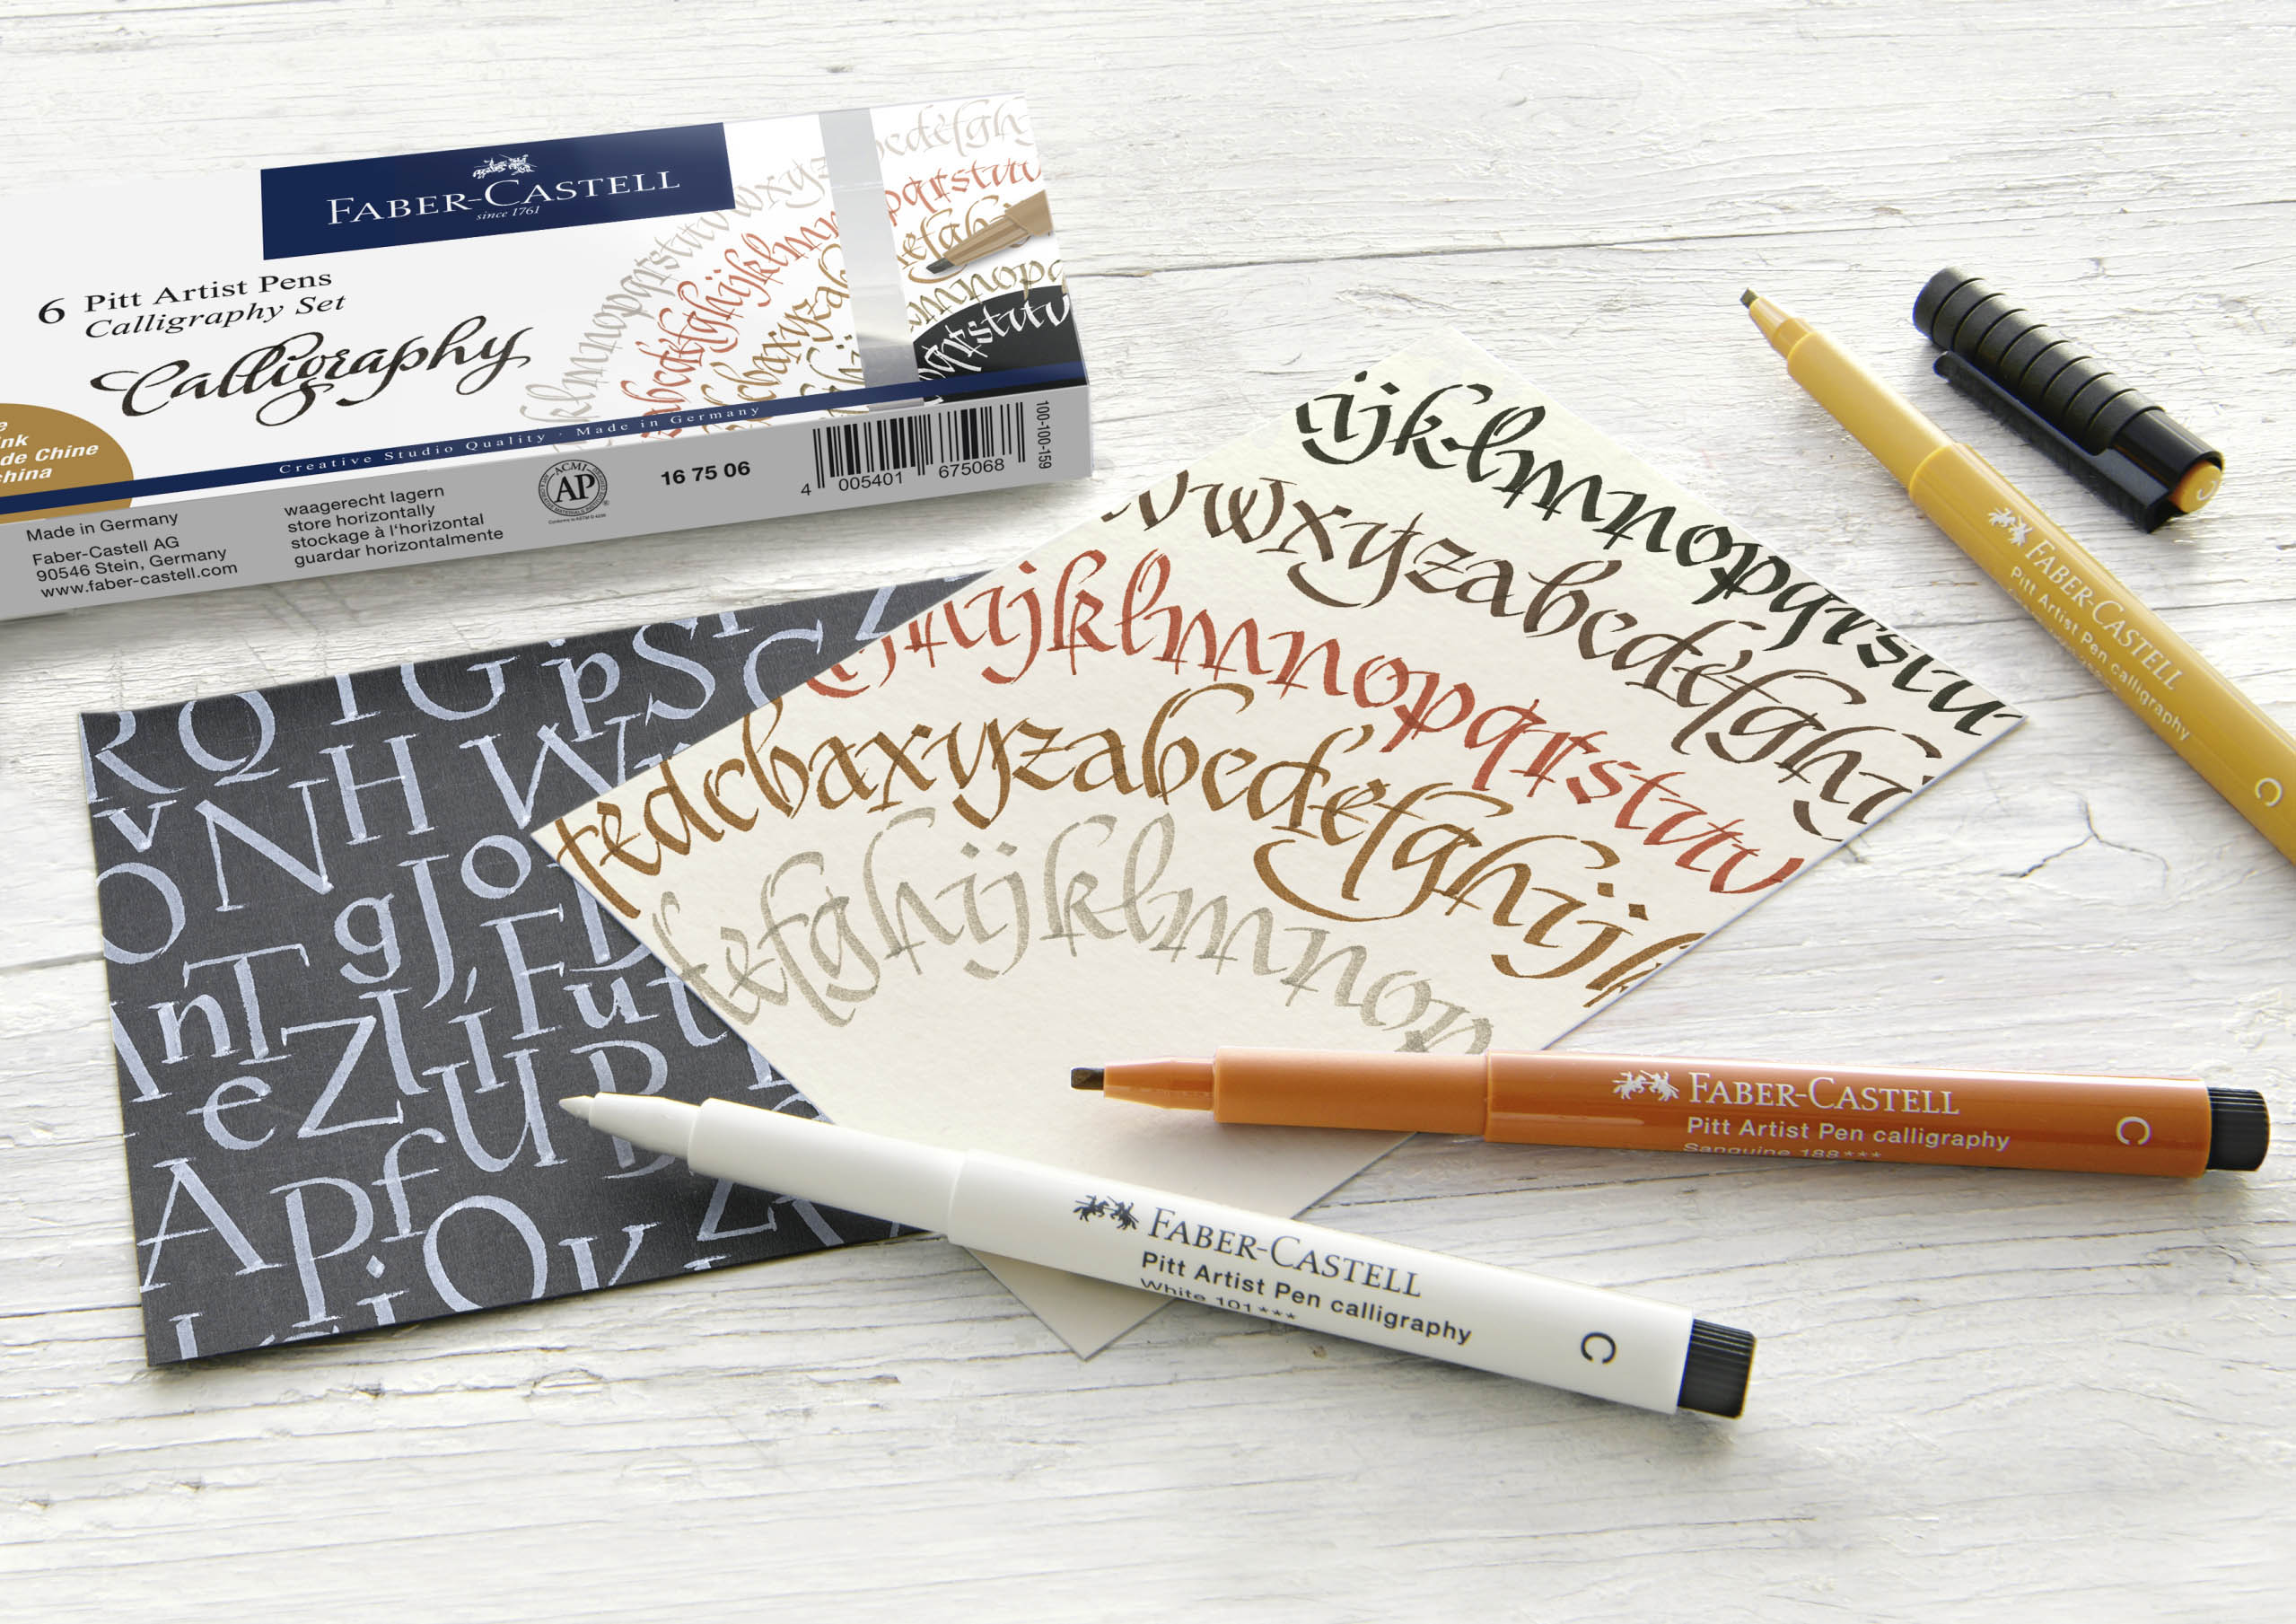 FABER-CASTELL
since 1761
6 Pitt Artist Pens
Calligraphy Set
Calligraphy
nk
de Chine
china
Creative Studio Quality · Made in Germany
Made in Germany
Faber-Castell AG
90546 Stein, Germany
www.faber-castell.com
waagerecht lagern
store horizontally
stockage à l'horizontal
guardar horizontalmente
ACMI
AP
16 75 06
4 005401 675068
100-100-159
ijklmnopqrstu
vwxyzabcdefghi
hijklmnopqrstuv
fedcbaxyzabcdefghijk
defghijklmnop
R Q I G p S C
V N H W
O g J o
n T Z l F u t
e U B
A p f
i O v
FABER-CASTELL
Pitt Artist Pen calligraphy
C
FABER-CASTELL
Pitt Artist Pen calligraphy
Sanguine 188***
C
FABER-CASTELL
Pitt Artist Pen calligraphy
White 101***
C